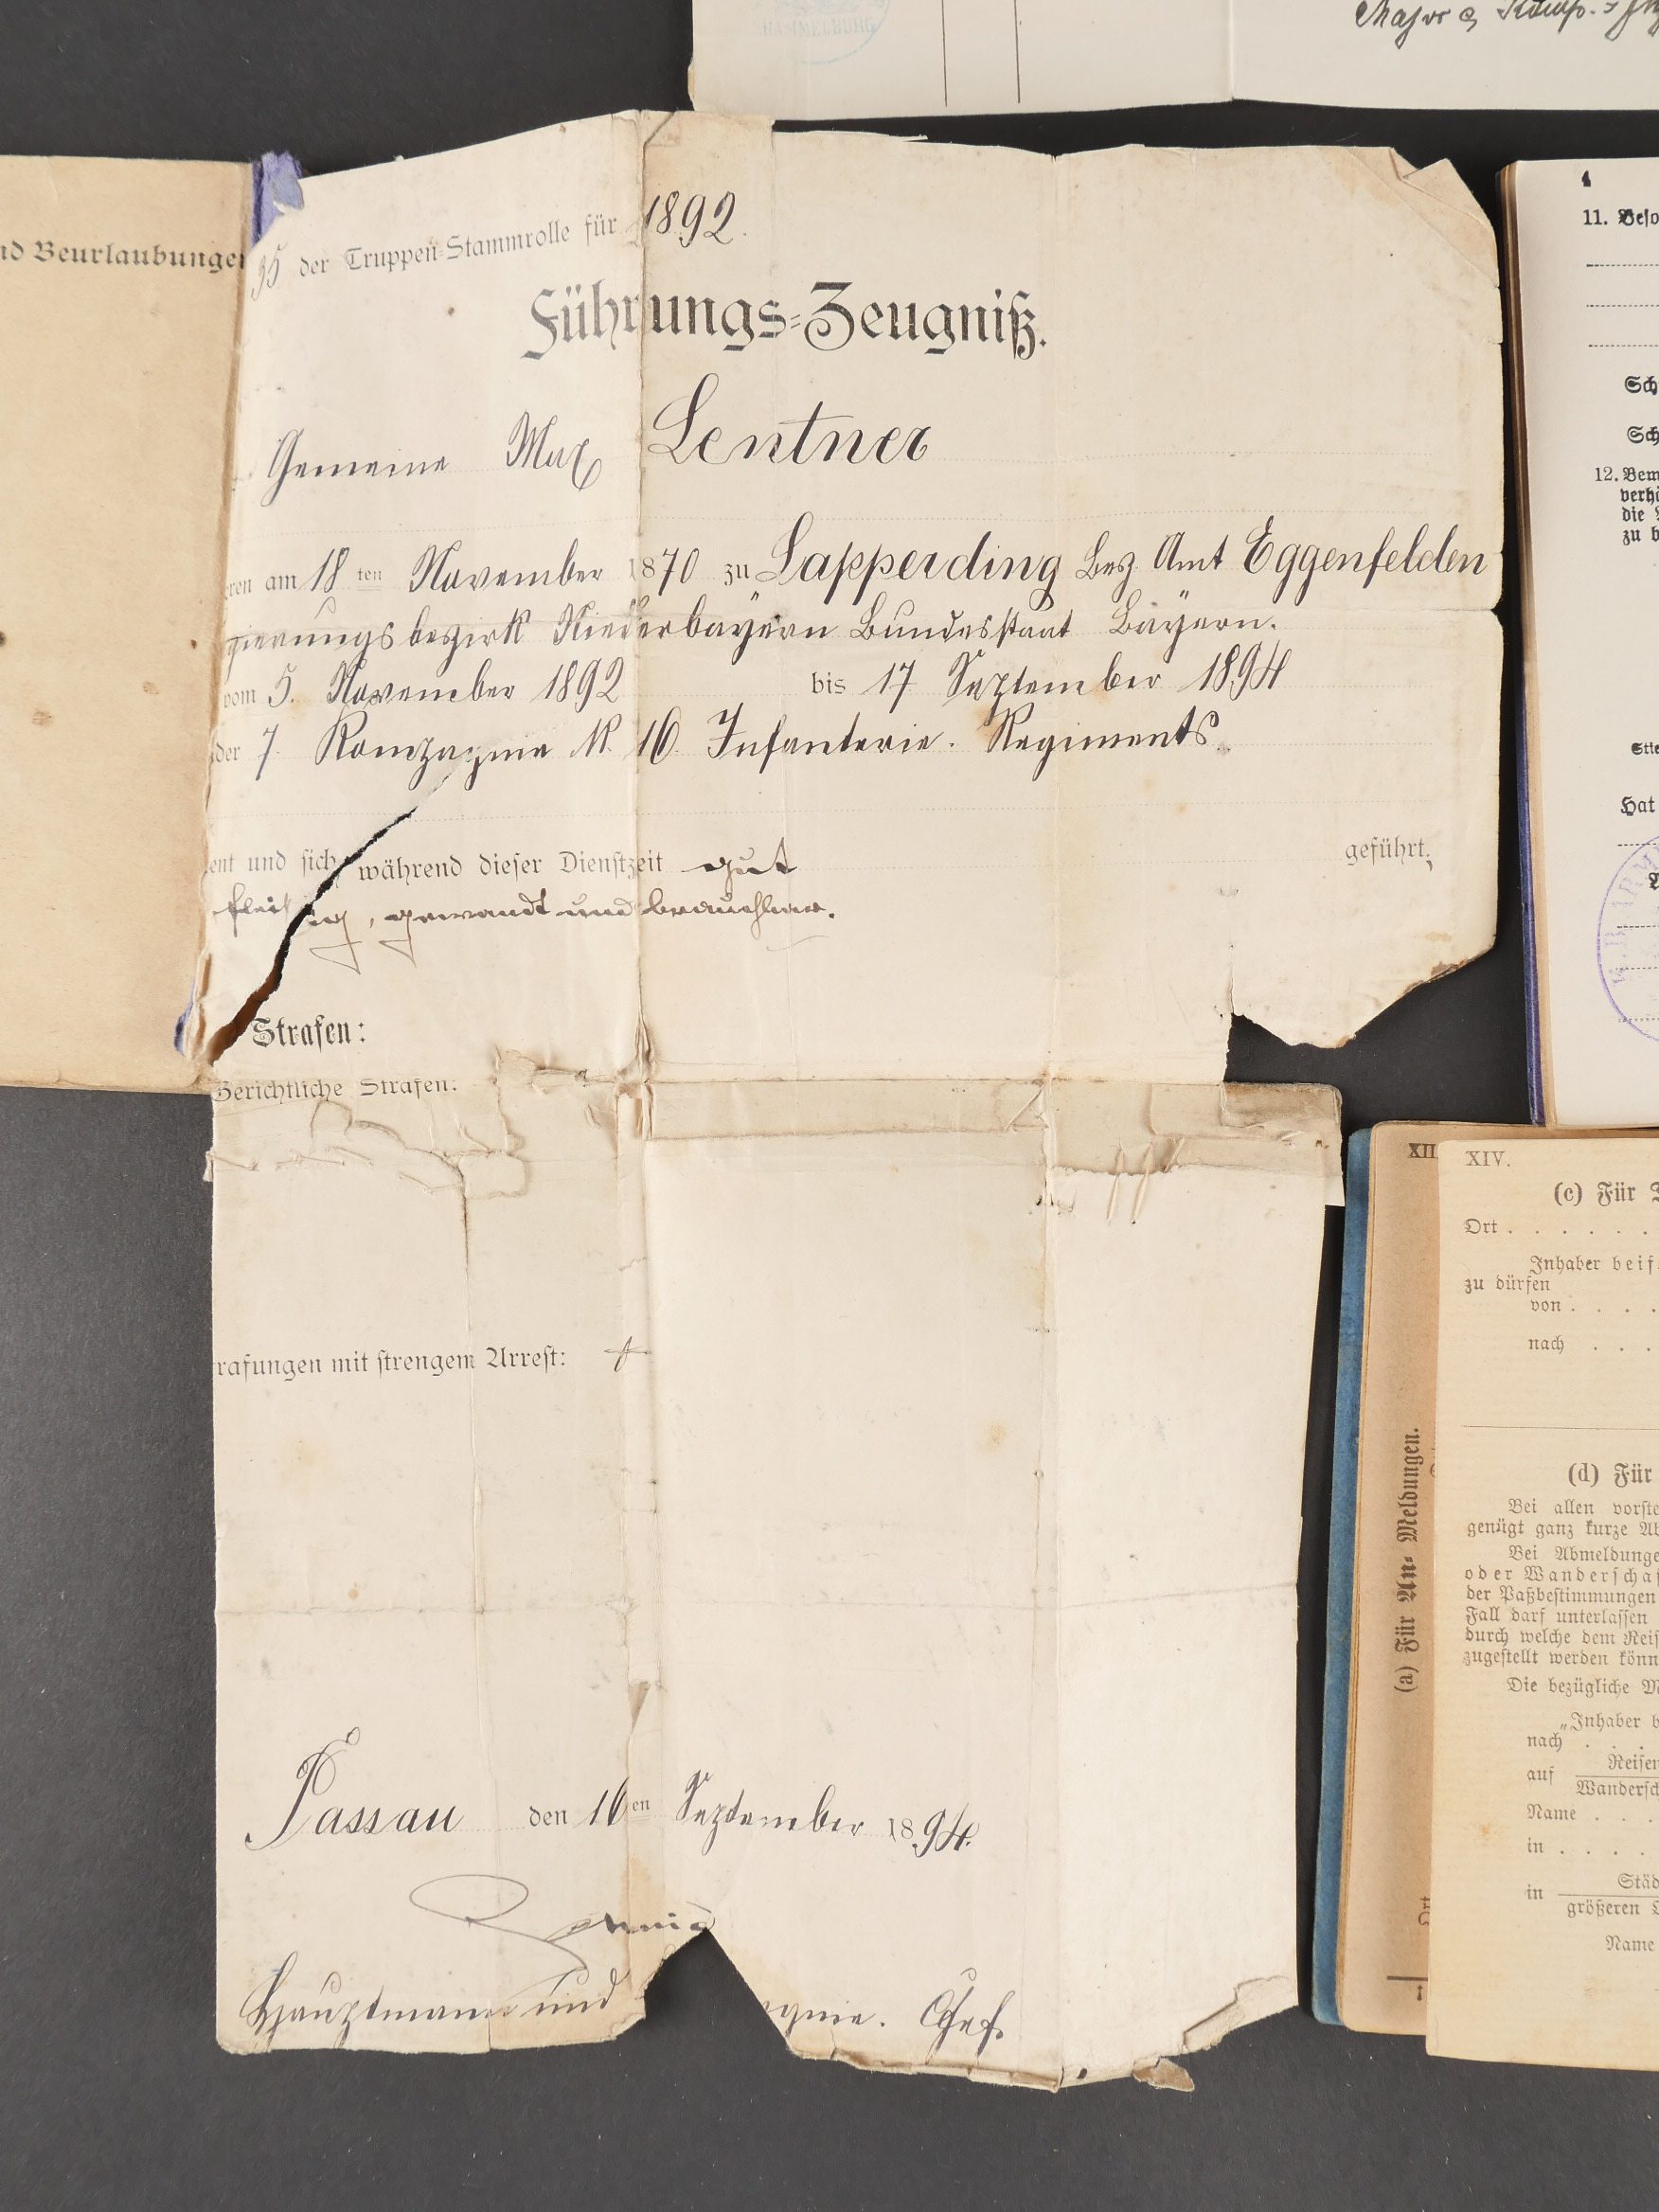 HAMMELBURG
Major & Komp.
nd Beurlaubungen
95 der Truppen-Stammrolle für 1892.
Führungs-Zeugniß.
Gemeine Max Lentner
ren am 18 ten November 1870 zu Lapperding Bez. Amt Eggenfelden
gierungsbezirk Niederbayern Bundesstaat Bayern.
vom 5. November 1892 bis 17 September 1894
der 7. Kompagnie K. 16. Infanterie. Regiments.
ent und sich während dieser Dienstzeit gut geführt;
fleißig, gewandt und brauchbar.
Strafen:
Gerichtliche Strafen:
rafungen mit strengem Arrest:
Passau den 16 en September 1894.
Hauptmann und gnie. Chef.
4
11. Beso
Sch
Sch
12. Bem
verhä
die
zu b
Stie
Hat
XII
(a) Für An- Meldungen.
Ort
XIV.
(c) Für
Ort . . . . . .
Inhaber beif
zu dürfen
von . . . .
nach . . .
(d) Für
Bei allen vorste
genügt ganz kurze Ab
Bei Abmeldunge
oder Wanderschaf
der Paßbestimmungen
Fall darf unterlassen
durch welche dem Reis
zugestellt werden könn
Die bezügliche M
„Inhaber b
nach . . .
auf Reisen
Wandersch
Name . . .
in . . . .
in Städ
größeren
Name